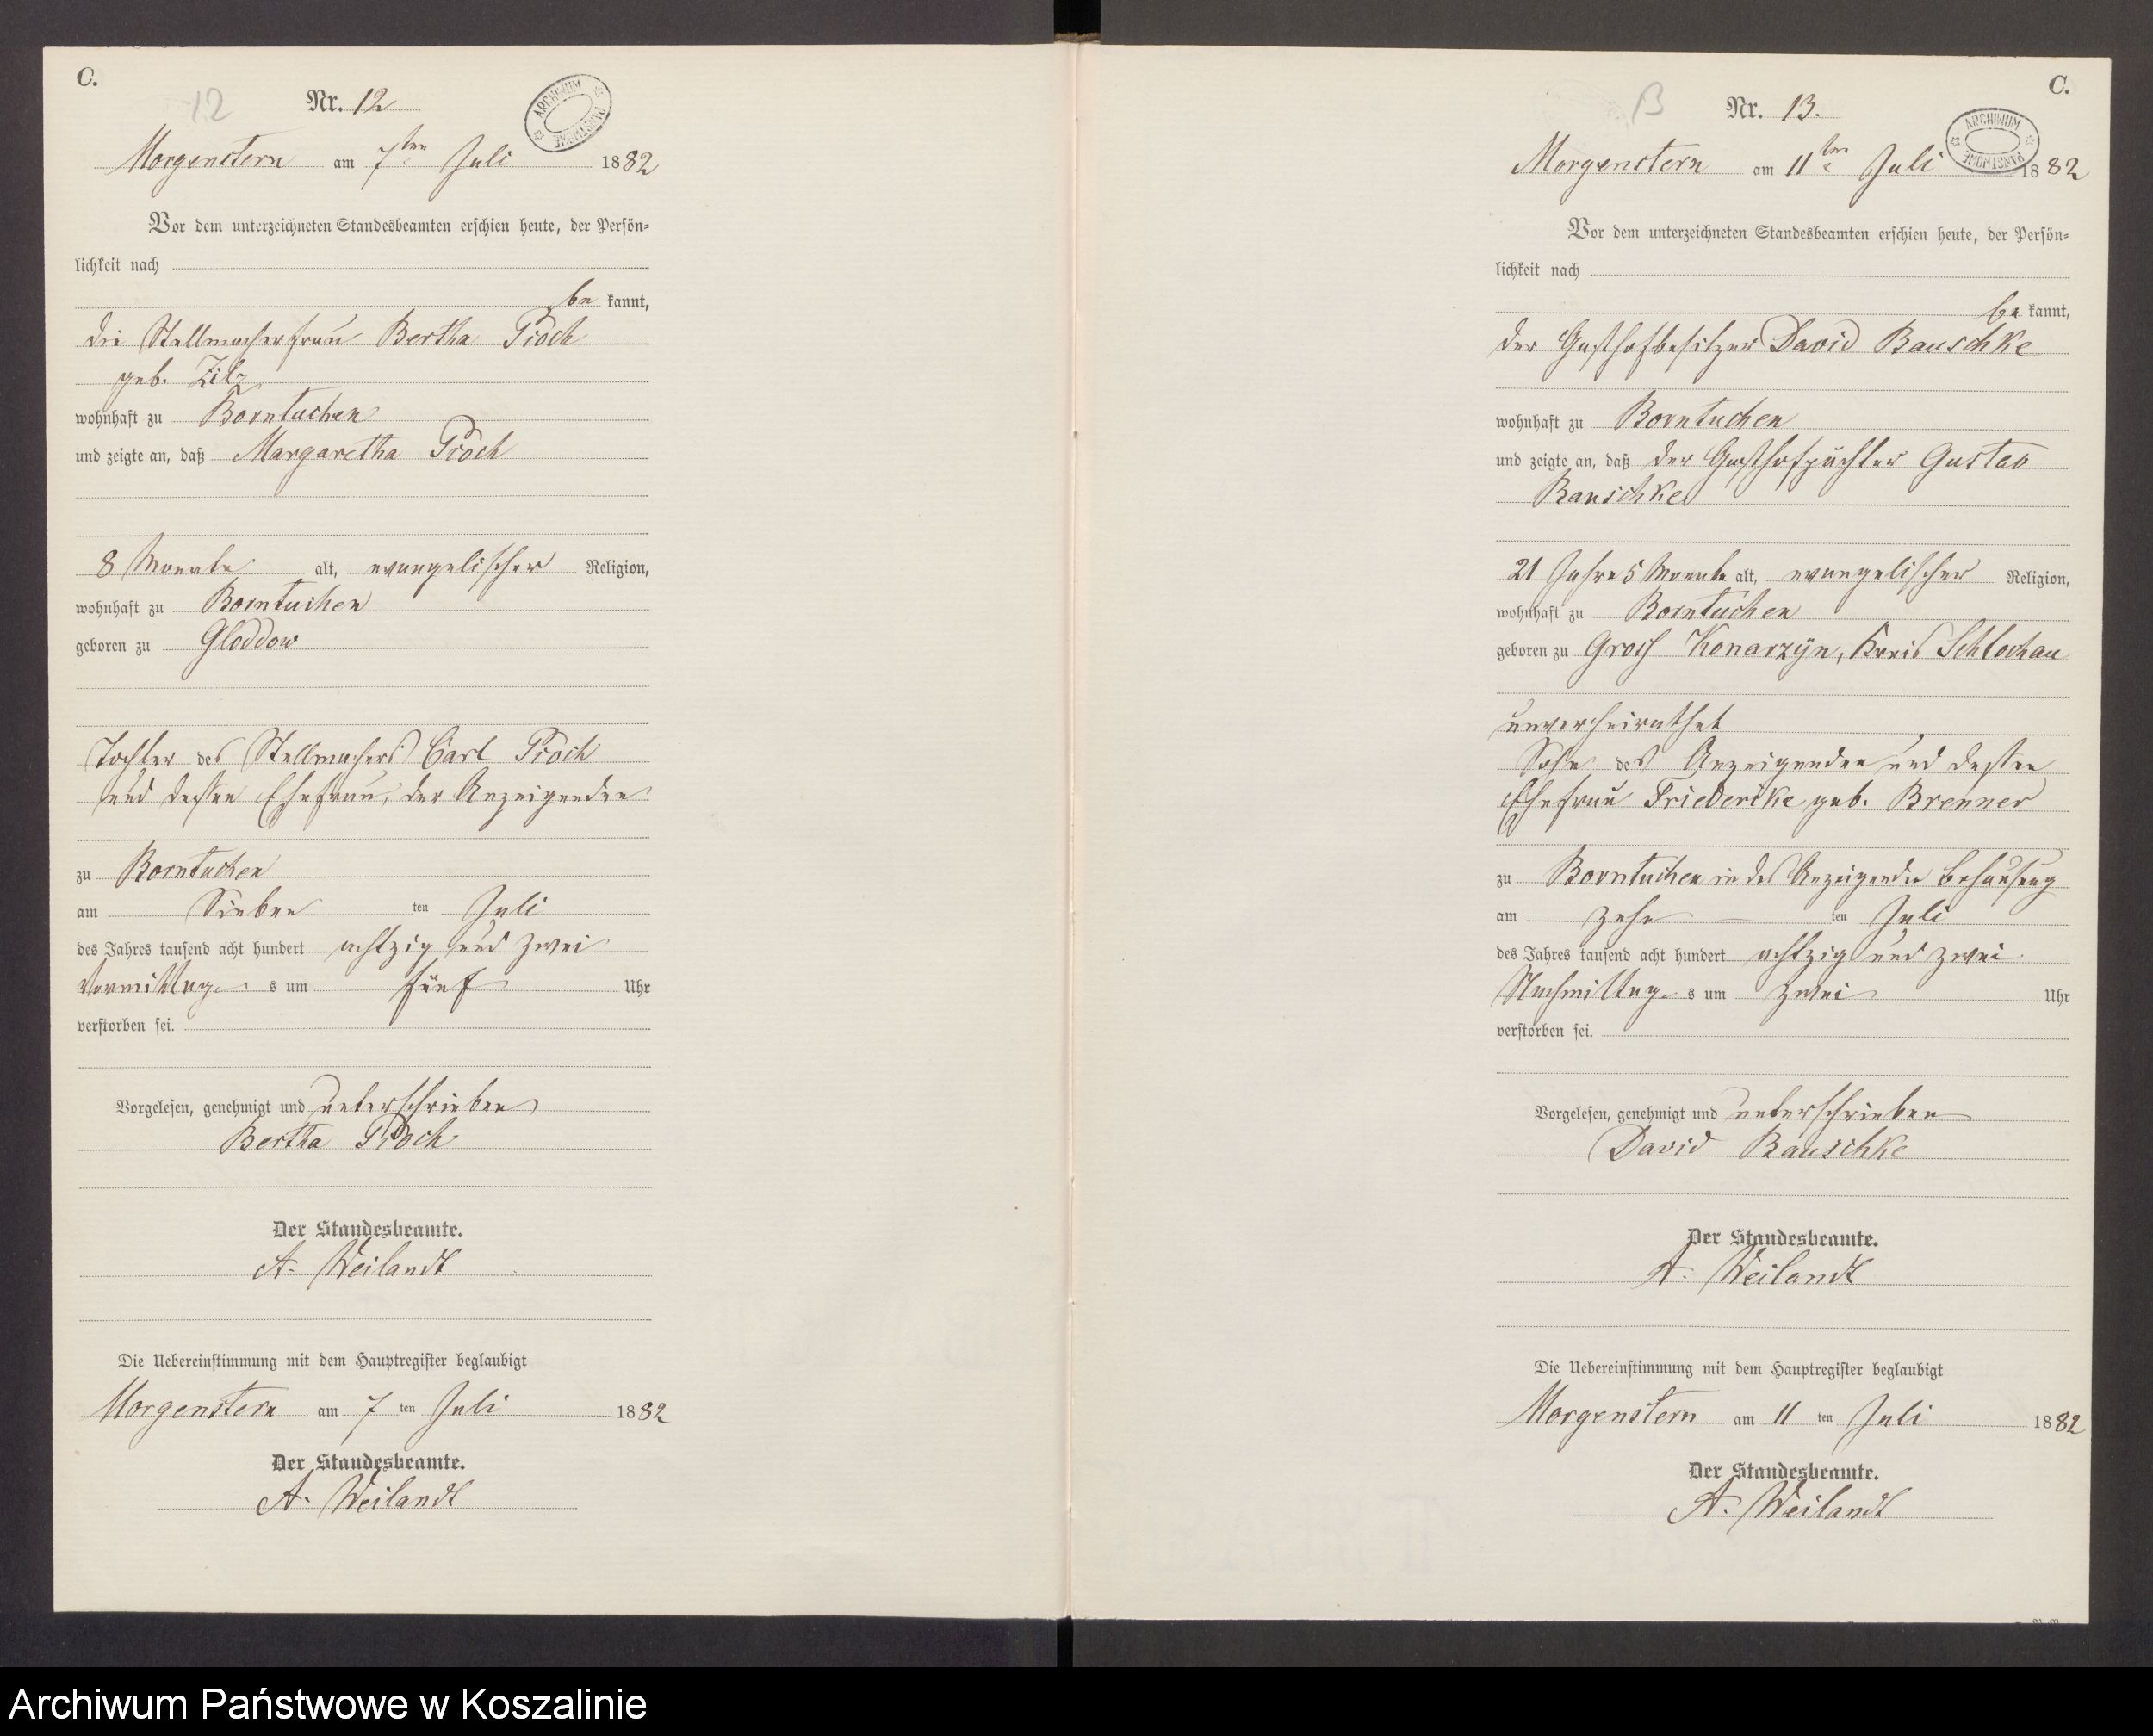 C.
12
Nr. 12
ARCHIWUM PAŃSTWOWE
Morgenstern am 7ten Juli 1882
Vor dem unterzeichneten Standesbeamten erschien heute, der Persön-
lichkeit nach
be kannt,
die Stellmacherfrau Bertha Pioch
geb. Zilz
wohnhaft zu Borntuchen
und zeigte an, daß Margaretha Pioch
8 Monate alt, evangelischer Religion,
wohnhaft zu Borntuchen
geboren zu Gloddow
Tochter des Stellmachers Carl Pioch
und dessen Ehefrau, der Anzeigenden
zu Borntuchen
am Sieben ten Juli
des Jahres tausend acht hundert achtzig und zwei
Vormittag s um fünf Uhr
verstorben sei.
Vorgelesen, genehmigt und unterschrieben
Bertha Pioch
Der Standesbeamte.
A. Weilandt
Die Uebereinstimmung mit dem Hauptregister beglaubigt
Morgenstern am 7 ten Juli 1882
Der Standesbeamte.
A. Weilandt
C.
13
Nr. 13.
ARCHIWUM PAŃSTWOWE
Morgenstern am 11ten Juli 1882
Vor dem unterzeichneten Standesbeamten erschien heute, der Persön-
lichkeit nach
be kannt,
der Gasthofbesitzer David Bauschke
wohnhaft zu Borntuchen
und zeigte an, daß der Gasthofpächter Gustav
Bauschke
21 Jahre 5 Monate alt, evangelischer Religion,
wohnhaft zu Borntuchen
geboren zu Groß Konarzyn, Kreis Schlochau
unverheirathet
Sohn des Anzeigenden und dessen
Ehefrau Friederike geb. Brenner
zu Borntuchen in des Anzeigenden Behausung
am zehn ten Juli
des Jahres tausend acht hundert achtzig und zwei
Nachmittag s um zwei Uhr
verstorben sei.
Vorgelesen, genehmigt und unterschrieben
David Bauschke
Der Standesbeamte.
A. Weilandt
Die Uebereinstimmung mit dem Hauptregister beglaubigt
Morgenstern am 11 ten Juli 1882
Der Standesbeamte.
A. Weilandt
Archiwum Państwowe w Koszalinie